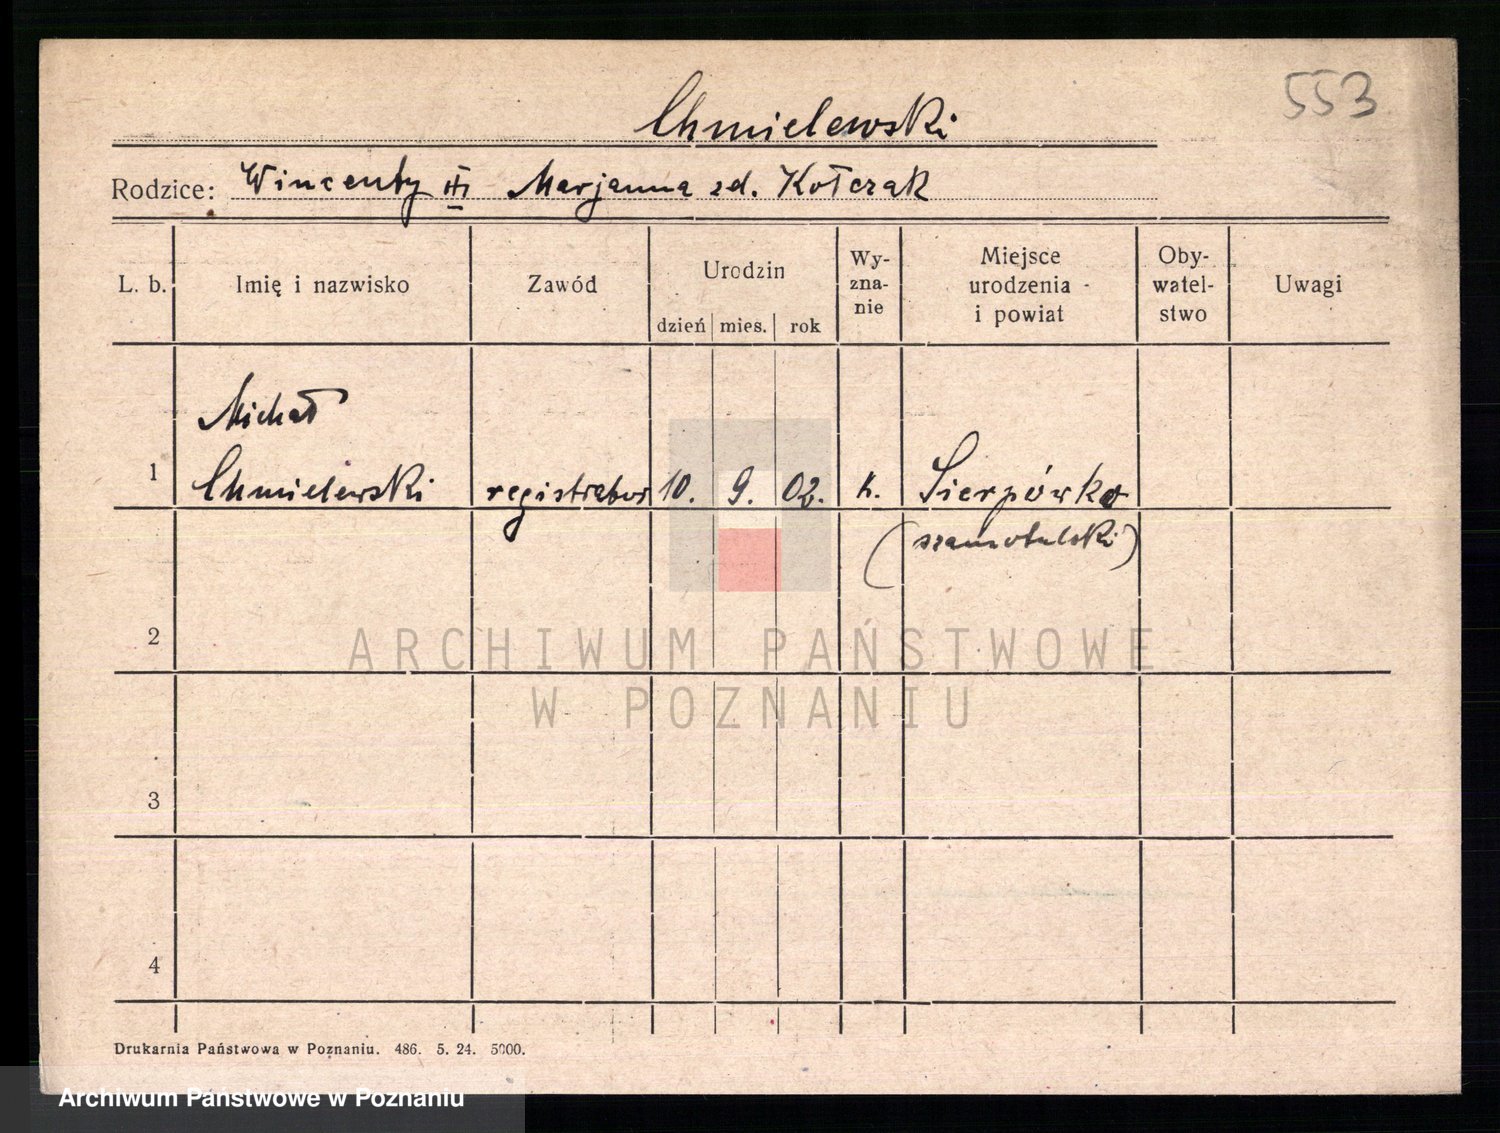 553
Chmielewski
Rodzice: Wincenty III Marjanna zd. Kołczak
L. b. Imię i nazwisko Zawód Urodzin Wy-zna-nie Miejsce urodzenia i powiat Oby-watel-stwo Uwagi
dzień mies. rok
Michał
1 Chmielewski registrator 10. 9. 02. k. Sierpówko
(szamotulski)
2
ARCHIWUM PAŃSTWOWE
W POZNANIU
3
4
Drukarnia Państwowa w Poznaniu. 486. 5. 24. 5000.
Archiwum Państwowe w Poznaniu